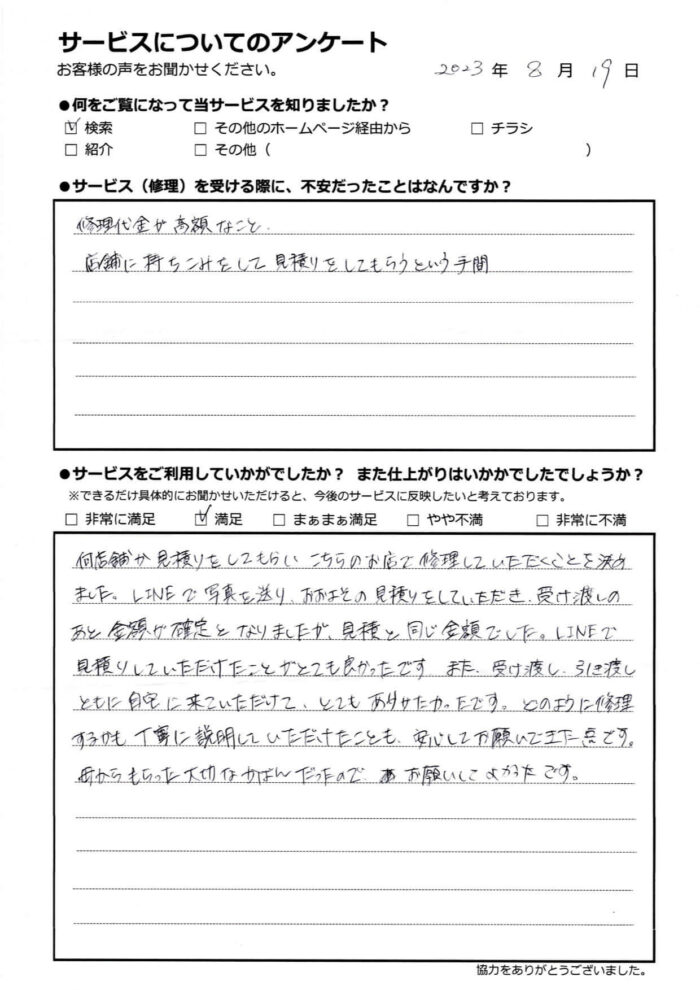 サービスについてのアンケート
お客様の声をお聞かせください。
2023 年 8 月 19 日
●何をご覧になって当サービスを知りましたか？
☑ 検索 □ その他のホームページ経由から □ チラシ
□ 紹介 □ その他（ ）
●サービス（修理）を受ける際に、不安だったことはなんですか？
修理代金が高額なこと、
店舗に持ちこみをして見積りをしてもらうという手間
●サービスをご利用していかがでしたか？ また仕上がりはいかかでしたでしょうか？
※できるだけ具体的にお聞かせいただけると、今後のサービスに反映したいと考えております。
□ 非常に満足 ☑ 満足 □ まぁまぁ満足 □ やや不満 □ 非常に不満
何店舗か見積りをしてもらい こちらのお店で修理していただくことを決め
ました。LINEで写真を送り、おおよその見積りをしていただき、受け渡しの
あと金額が確定となりましたが、見積と同じ金額でした。LINEで
見積りしていただけたことがとても良かったです また、受け渡し、引き渡し
ともに自宅に来ていただけて、とてもありがたかったです。どのように修理
するかも丁寧に説明していただけたことも、安心してお願いできた点です。
母からもらった大切なかばんだったので、お願いしてよかったです。
協力をありがとうございました。